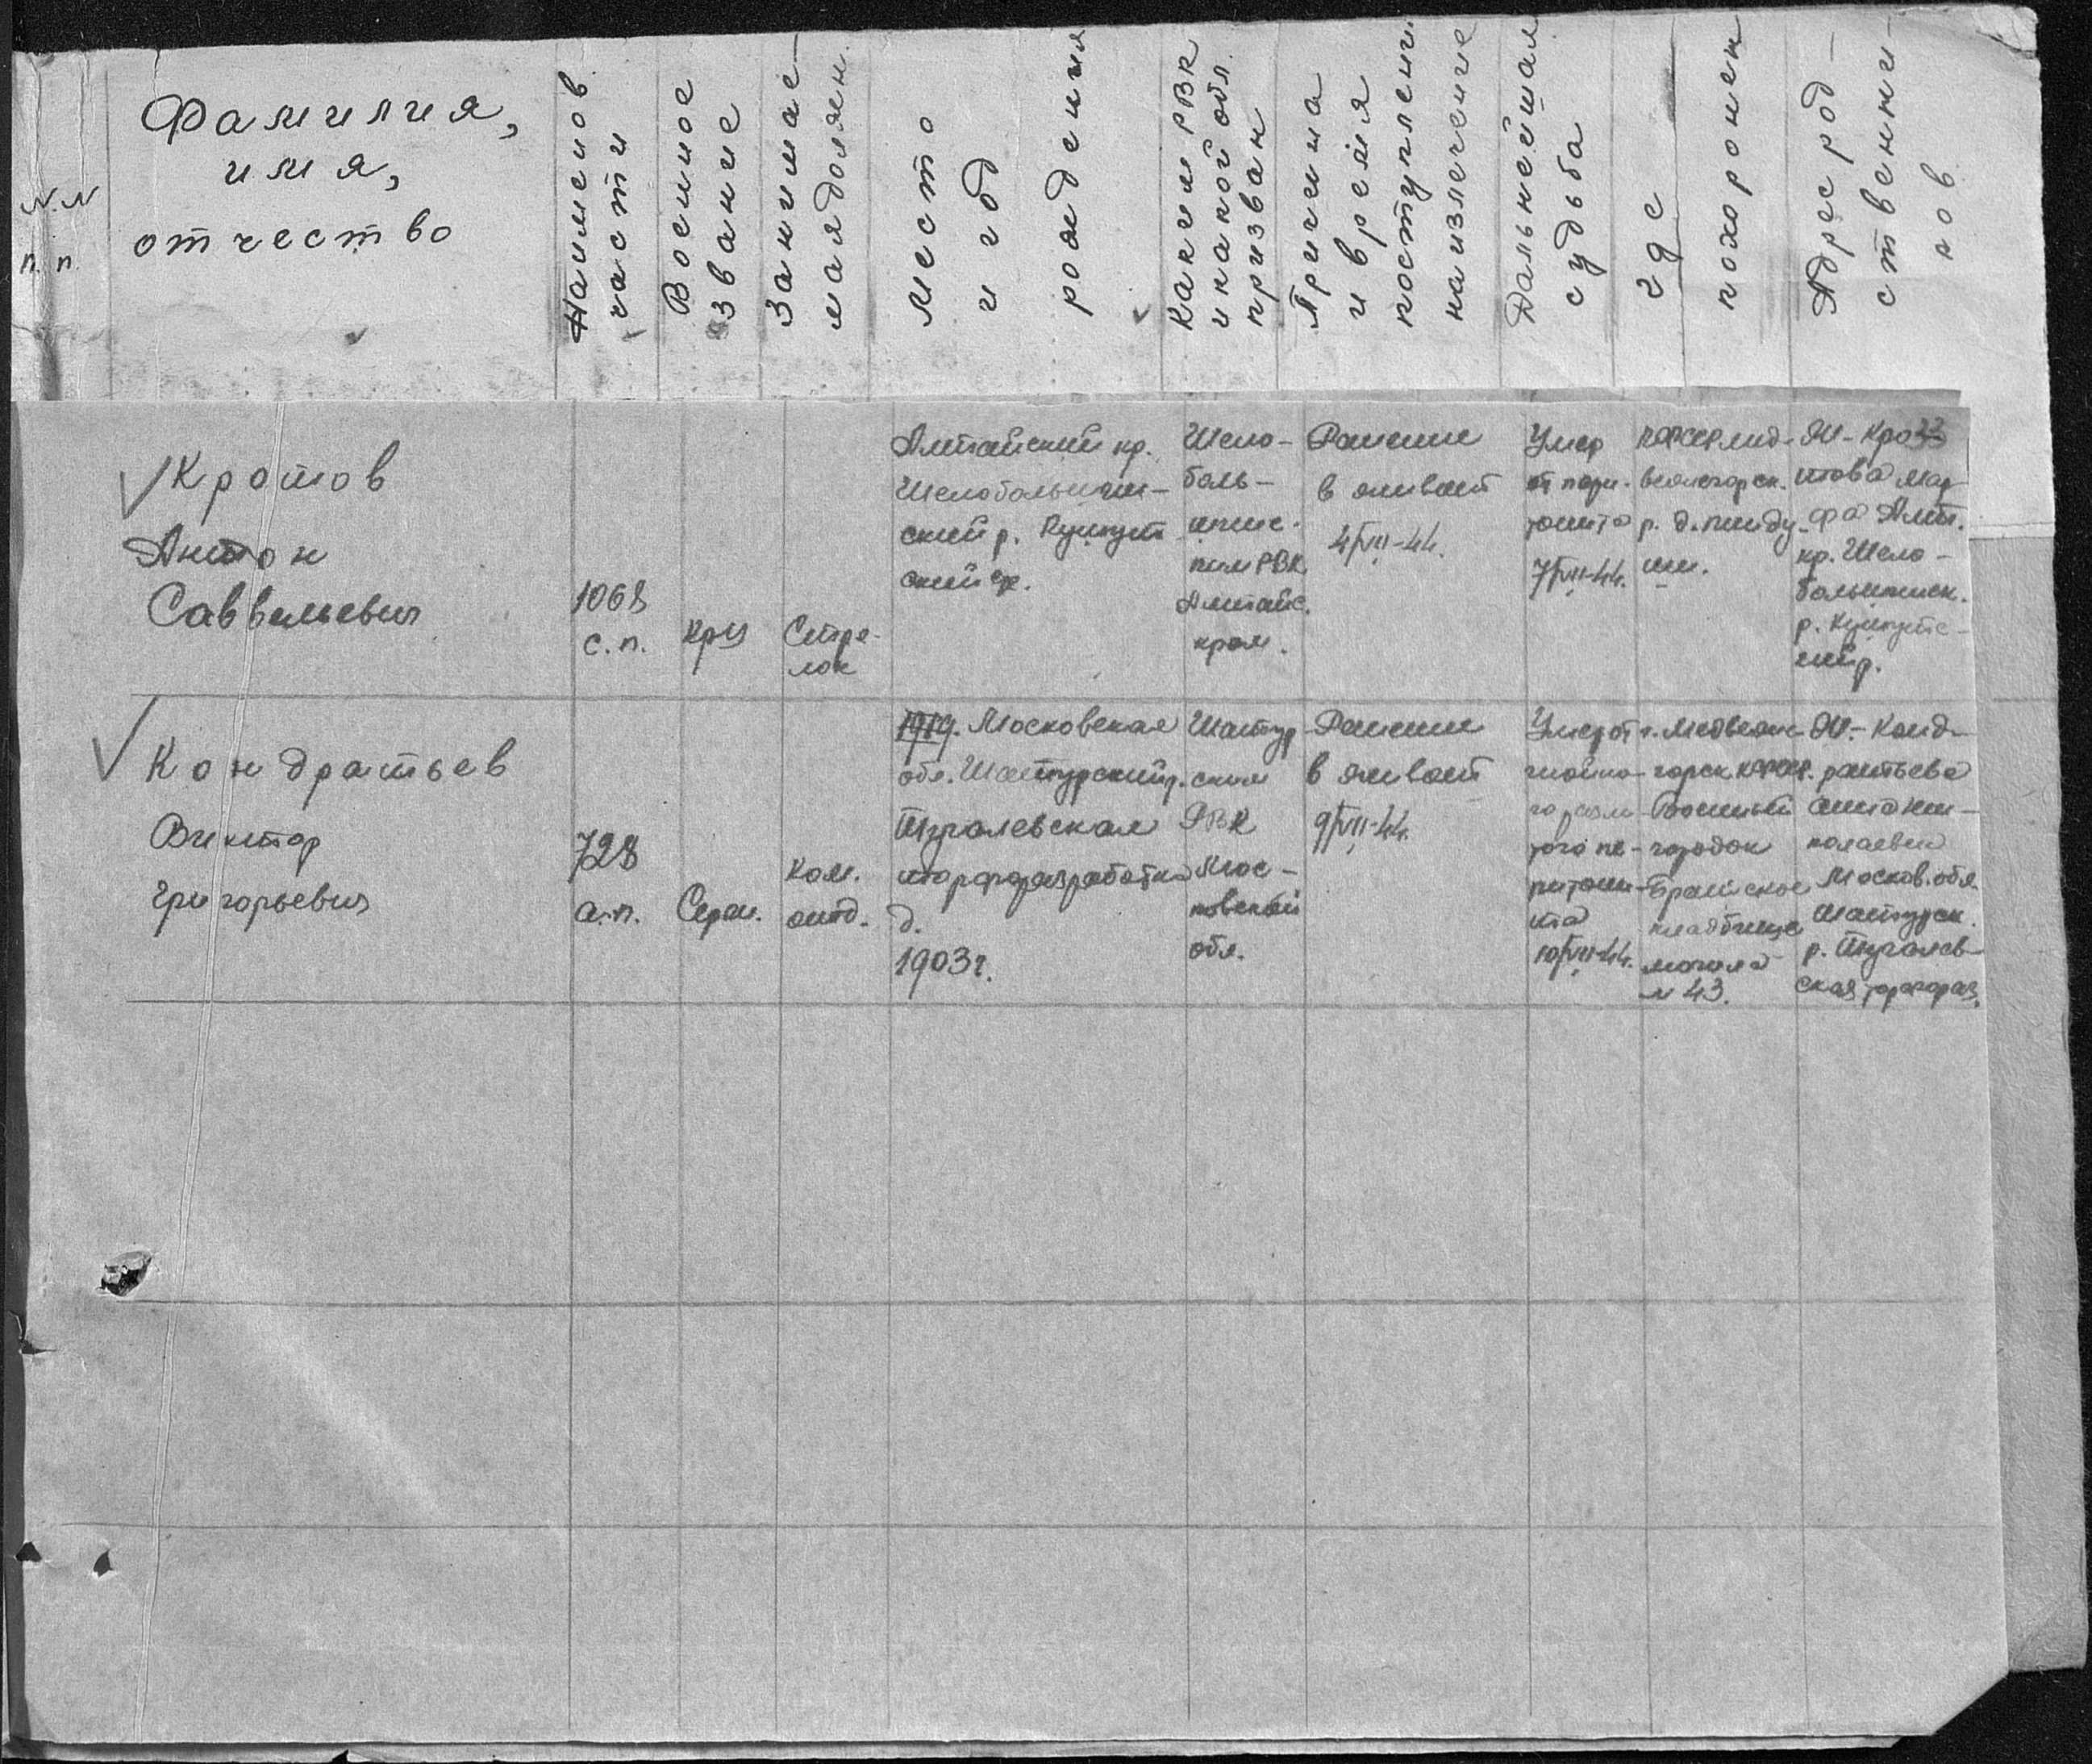 N.N
п.п.
Фамилия,
имя,
отчество
Наименов
части
Военное
звание
Занимае-
мая должн.
Место
и год
рождения
Каким РВК
и какой обл.
призван
Причина
и время
поступления
на излечение
Дальнейшая
судьба
где
похоронен
Адрес род-
ственни-
ков
Кротов
Антон
Савельевич
1068
с.п.
Кр-ц
Стре-
лок
Алтайский кр.
Шелоболихин-
ский р.
Шело-
боль-
РВК
Алтайс.
края.
Ранение
в живот
4/VII-44.
Умер
от пери-
тонита
7/VII-44.
КФССР мед-
вежегорск.
р. д. Пинду-
ши.
33
Ж-Кро-
това Мар-
фа Алт.
кр. Шело-
р.
Кондратьев
Виктор
Григорьевич
728
а.п.
Серж.
Ком.
отд.
1919. Московская
обл. Шатурский р.
Туголевская
торфоразработка
д.
1903 г.
Шатур-
ским
РВК
Мос-
ковской
обл.
Ранение
в живот
9/VII-44.
Умер от
гнойно-
го разли-
того пе-
ритони-
та
10/VII-44.
г. Медвеж-
горск КФССР.
Военный
городок
Братское
кладбище
могила
N 43.
Ж.-Конд-
ратьева
колаевна
Москов. обл.
Шатурск.
р. Туголев-
ская торфораз.